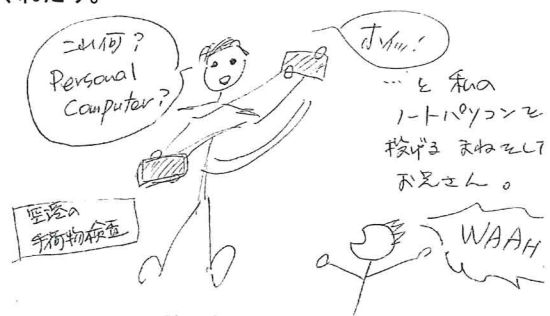 これ何？
Personal
Computer?
ホイッ！
…と 私の
ノートパソコンを
投げる まねをして
お兄さん。
空港の
手荷物検査
WAAH